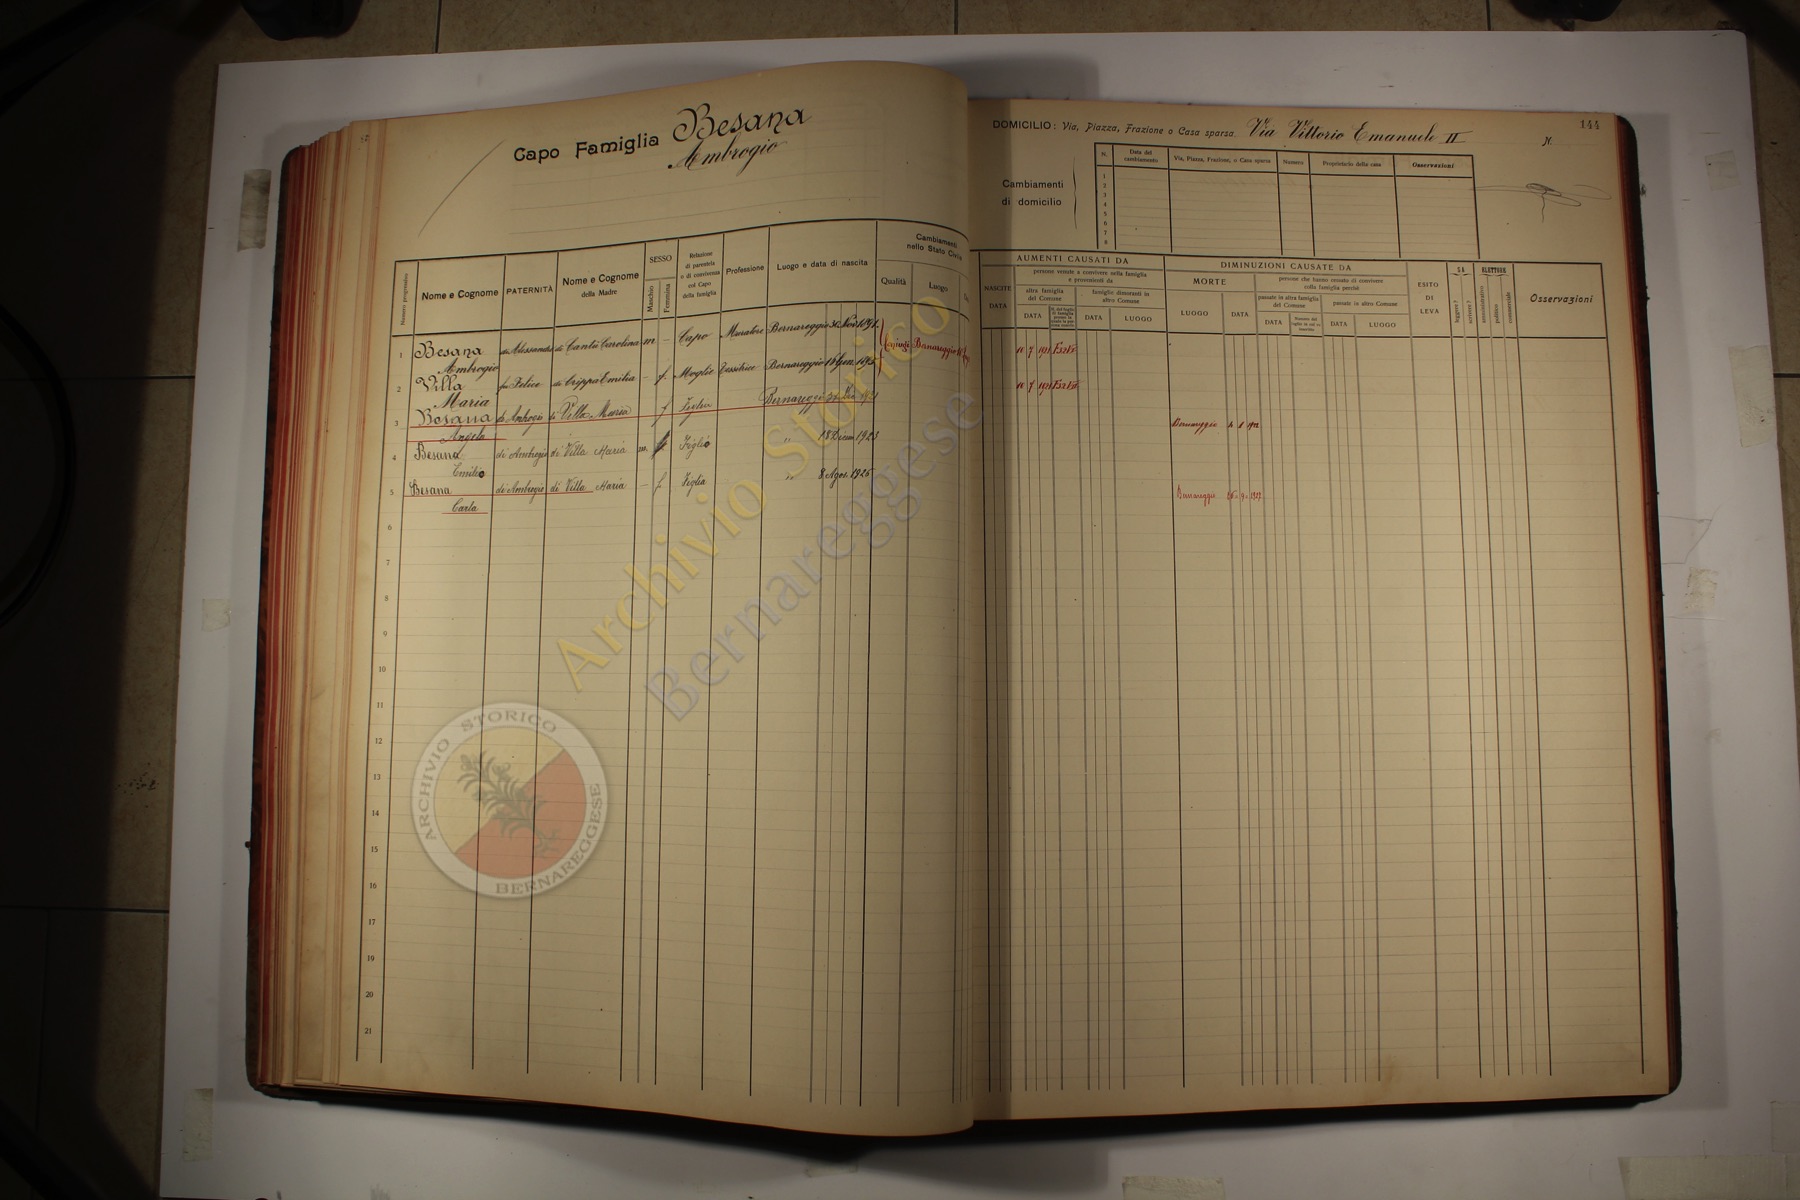 Capo Famiglia Besana
Ambrogio
DOMICILIO: Via, Piazza, Frazione o Casa sparsa. Via Vittorio Emanuele II N.
144
Cambiamenti
di domicilio
N. Data del cambiamento Via, Piazza, Frazione, o Casa sparsa Numero Proprietario della casa Osservazioni
1
2
3
4
5
6
7
8
Numero progressivo
Nome e Cognome
PATERNITÀ
Nome e Cognome
della Madre
SESSO
Maschio
Femmina
Relazione
di parentela
o di convivenza
col Capo
della famiglia
Professione
Luogo e data di nascita
Cambiamenti
nello Stato Civile
Qualità
Luogo
AUMENTI CAUSATI DA
NASCITE
DATA
persone venute a convivere nella famiglia
e provenienti da
altra famiglia
del Comune
DATA
famiglie dimoranti in
altro Comune
DATA LUOGO
DIMINUZIONI CAUSATE DA
MORTE
LUOGO DATA
persone che hanno cessato di convivere
colla famiglia perché
passate in altra famiglia
del Comune
DATA
passate in altro Comune
DATA LUOGO
ESITO
DI
LEVA
SA
leggere?
scrivere?
ELETTORE
amministrativo
politico
commerciale
Osservazioni
1 Besana di Alessandro di Cantù Carolina m - Capo Muratore Bernareggio Bernareggio 10 7
Ambrogio
2 Villa fu Felice di Crippa Emilia - f. Moglie Tessitrice Bernareggio 10 7
Maria
3 Besana di Ambrogio di Villa Maria f Figlia Bernareggio Bernareggio
Angela
4 Besana di Ambrogio di Villa Maria m. Figlio " 18 Dicem 1923
Emilio
5 Besana di Ambrogio di Villa Maria - f. Figlia " 8 Agos. 1926 Bernareggio
Carla
6
7
8
9
10
11
12
13
14
15
16
17
18
19
20
21
Archivio Storico
Bernareggese
ARCHIVIO STORICO
BERNAREGGESE